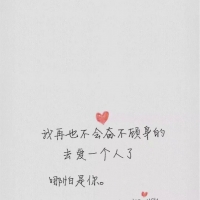 我再也不会奋不顾身的
去爱一个人了
哪怕是你。